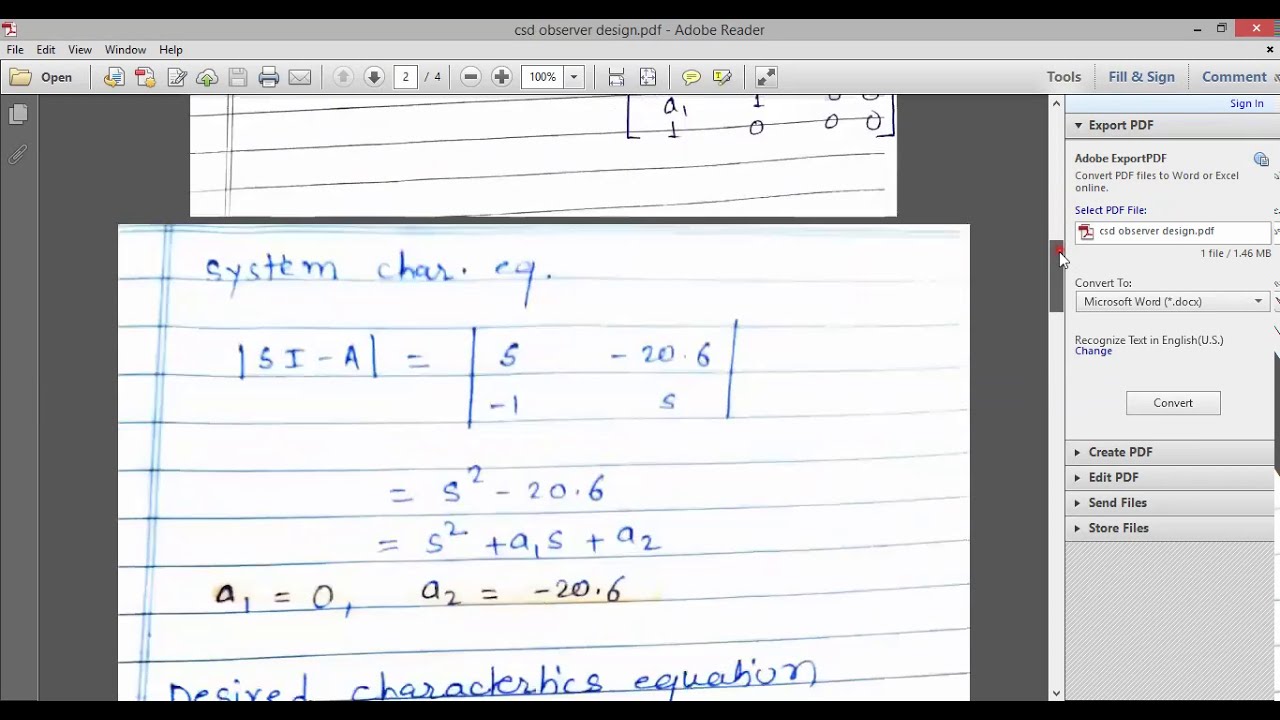 csd observer design.pdf - Adobe Reader
File Edit View Window Help
Open 2 / 4 100% Tools Fill & Sign Comment
Sign In
a₁ 1 0 0
1 0 0 0
Export PDF
Adobe ExportPDF
Convert PDF files to Word or Excel
online.
Select PDF File:
csd observer design.pdf
1 file / 1.46 MB
Convert To:
Microsoft Word (*.docx)
Recognize Text in English(U.S.)
Change
Convert
Create PDF
Edit PDF
Send Files
Store Files
system char. eq.
|SI-A| = | S -20.6 |
| -1 s |
= s² - 20.6
= s² + a₁s + a₂
a₁ = 0, a₂ = -20.6
Desired characterhics equation